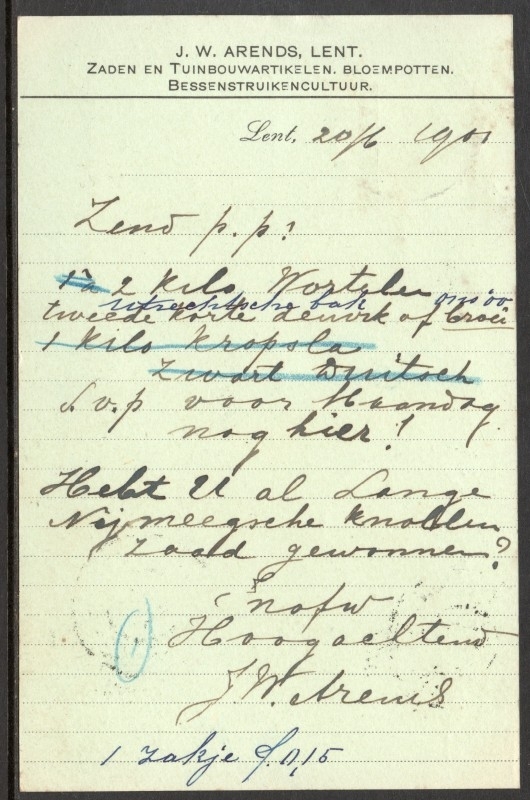 J. W. ARENDS, LENT.
ZADEN EN TUINBOUWARTIKELEN. BLOEMPOTTEN.
BESSENSTRUIKENCULTUUR.
Lent, 20/6 1901
Zend p.p!
1 à 2 Kilo Wortelen
Utrechtsche bak
tweede korte deuvik of broei
1 Kilo Kropsla
Zwart Duitsch
S.v.p voor Maandag
nog hier!
Hebt U al Lange
Nijmeegsche Knollen
zaad gewonnen?
Hoogachtend
J.W. Arends
1 zakje f. 0,15